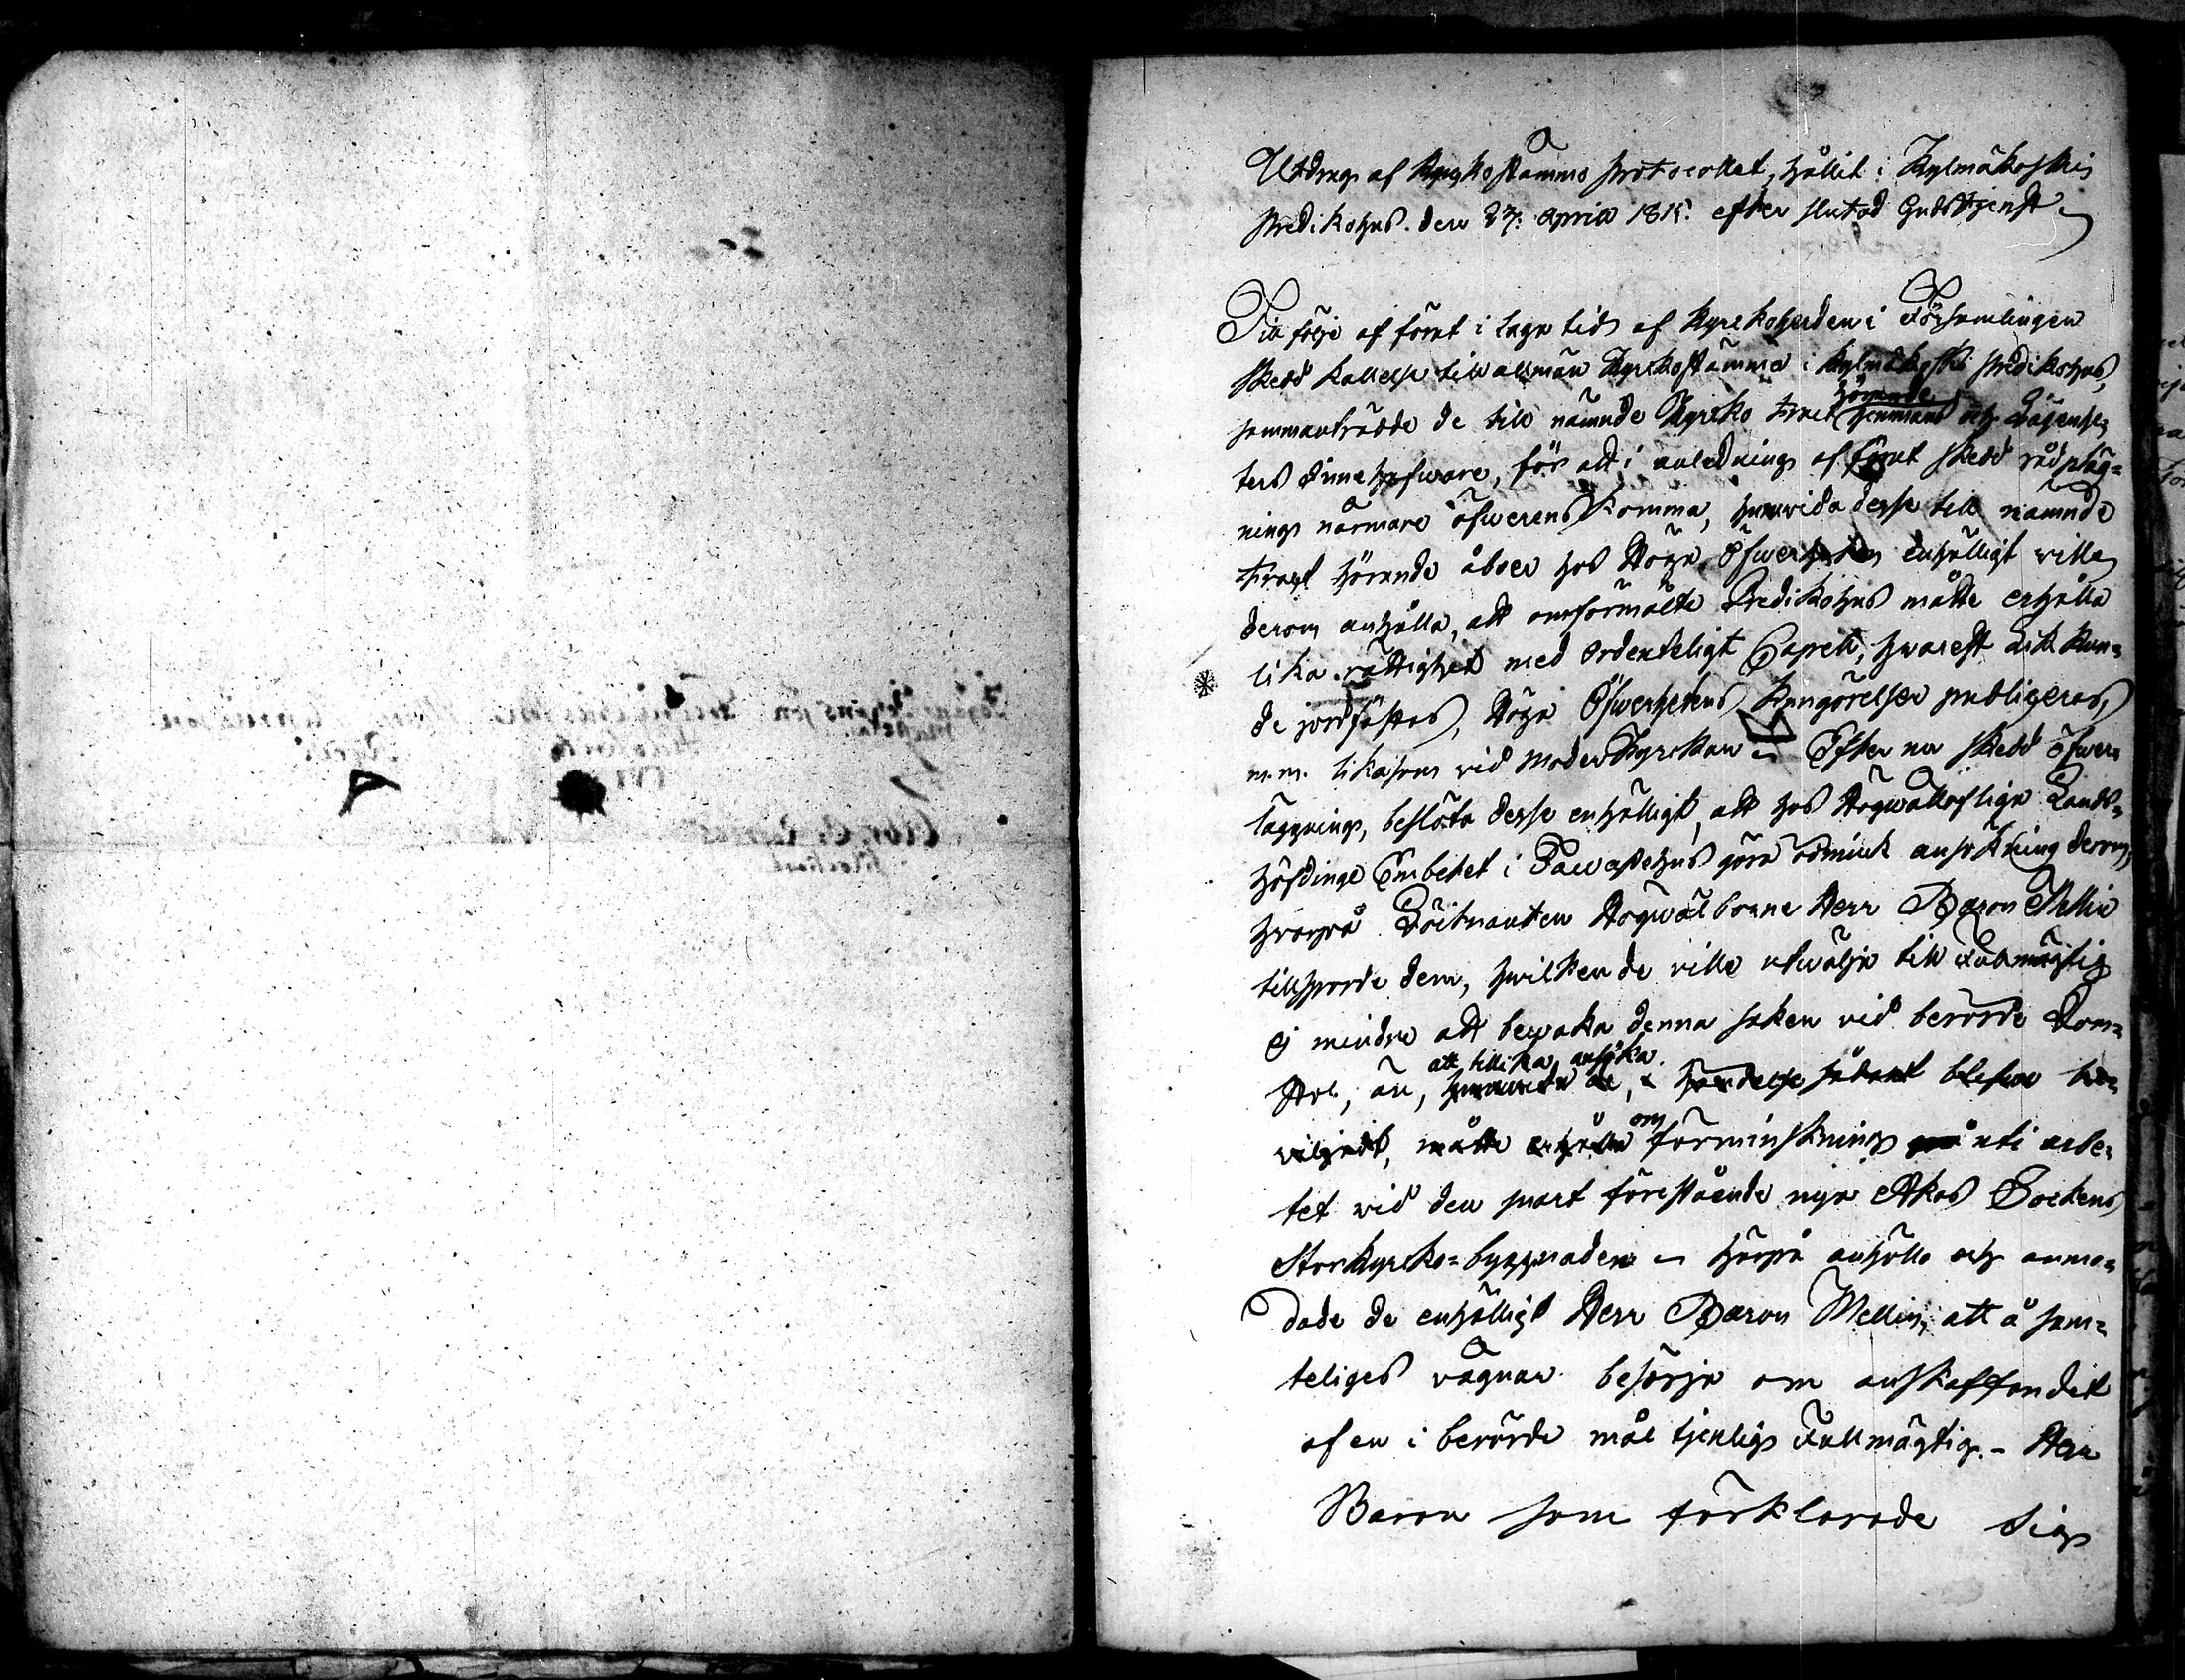 Utdrag af Kyrkostämmo protocollet, hållit i Kylmäkoski
predikohus den 27. April 1815. efter slutad Gudstjenst
Till följe af förut i laga tid af Kyrkoherden i Församlingen
skedd kallelse till allmän Kyrkostämma i Kylmäkoski predikohus,
hörande
sammanträdde de till nämnde Kyrko tract hemmans och lägenhe-
ters innehafware, för att i anledning af förut skedd rådpläg-
ning närmare öfwerenskomma, huruvida desse till nämnde
tract hörande åboer hos Höga Öfwerheten enhälligt wille
derom anhålla, att omförmälte Predikohus måtte erhålla
lika rättighet med ordenteligt Capell, hwarest Lik kun-
de jordfästas, Höga Öfwerhetens Kungörelser publiceras,
m.m. likasom vid ModerKyrkan – Efter nu skedd öfwer-
läggning, beslöto desse enhälligt, att hos Högwälloflige Lands-
höfdinge Embetet i Tawastehus göra ödmiuk ansökning derom,
hvarpå Löitnanten Högwälborne Herr Baron Mellin
tillsporde dem, hwilken de wille utwälja till Fullmägtig
ej mindre att bewaka denna saken vid berörde Dom-
att tillika ansöka
stol, än, huruvida de, i händelse sådant blefwe be-
om
viljadt, måtte erhålla förminskning uti arbe-
tet wid den snart förestående nya Akas Sockens
Storkyrko-byggnaden – Härpå anhöllo och anmo-
dade de enhälligt Herr Baron Mellin, att å sam-
teliges vägnar besörja om anskaffandet
af en i berörde mål tjenlig Fullmägtig. – Herr
Baron som förklarade sig